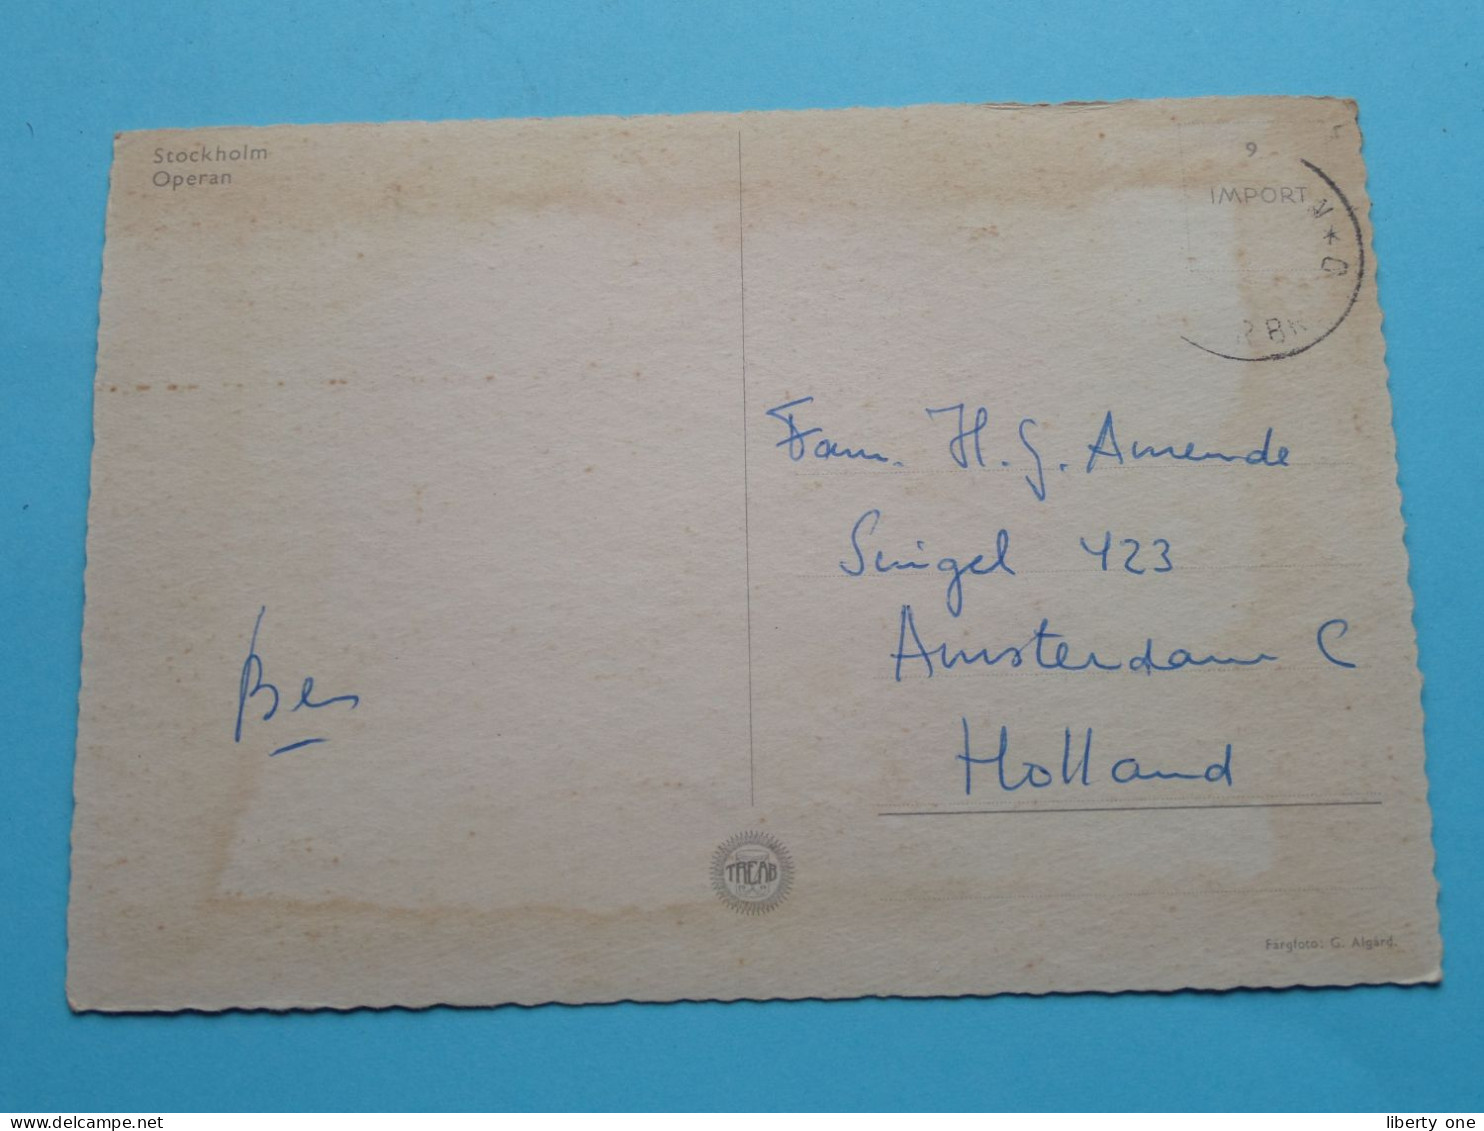 Stockholm
Operan
9
IMPORT
Fam. H. G. Amende
Singel 423
Amsterdam C
Holland
Ben
TREAB
Färgfoto: G. Algård.
liberty one